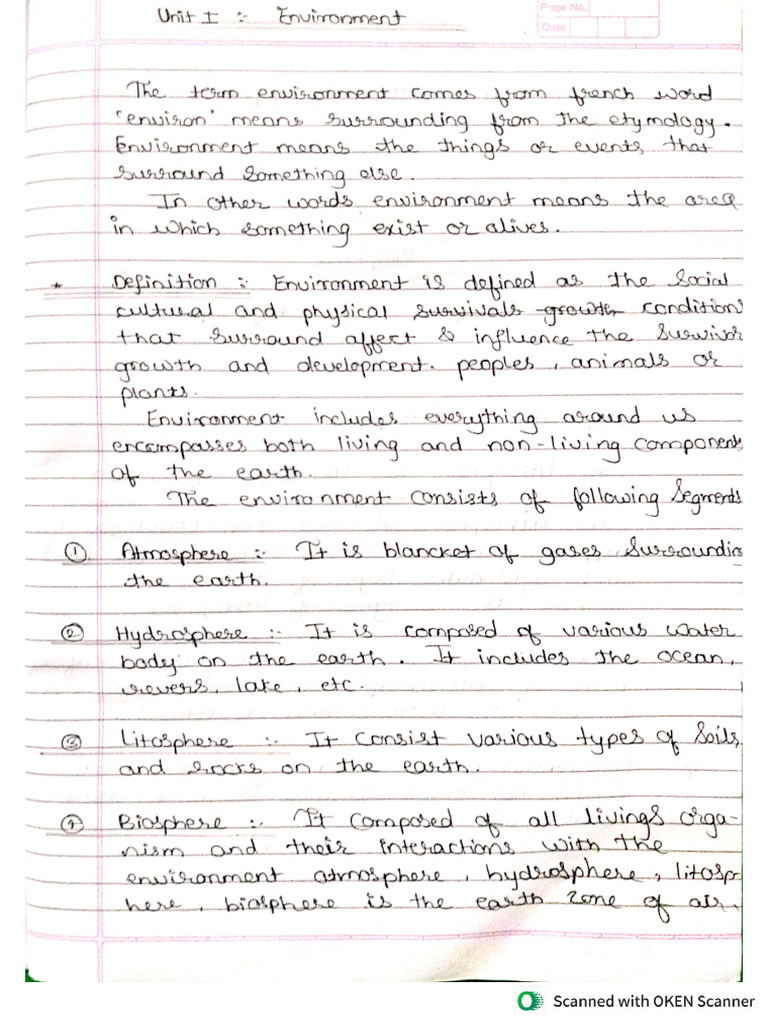 Unit I :- Environment
Page No.
Date
The term environment comes from french word
'environ' means surrounding from the etymology.
Environment means the things or events, that
surround something else.
In other words environment means the area
in which something exist or alives.
* Definition :- Environment is defined as the Social
cultural and physical survivals growth condition
that surround affect & influence the survivor
growth and development. peoples, animals or
plants.
Environment includes everything around us
encompasses both living and non-living components
of the earth.
The environment consists of following Segments
① Atmosphere :- It is blancket of gases Surroundin
the earth.
② Hydrosphere :- It is composed of various water
body on the earth. It includes the ocean,
revers, lake, etc.
③ Litosphere :- It Consist various types of Soils
and rocks on the earth.
④ Biosphere :- It composed of all livings orga-
nism and their interactions with the
environment atmosphere, hydrosphere, litosp
here, biasphere is the earth zone of air,
Scanned with OKEN Scanner